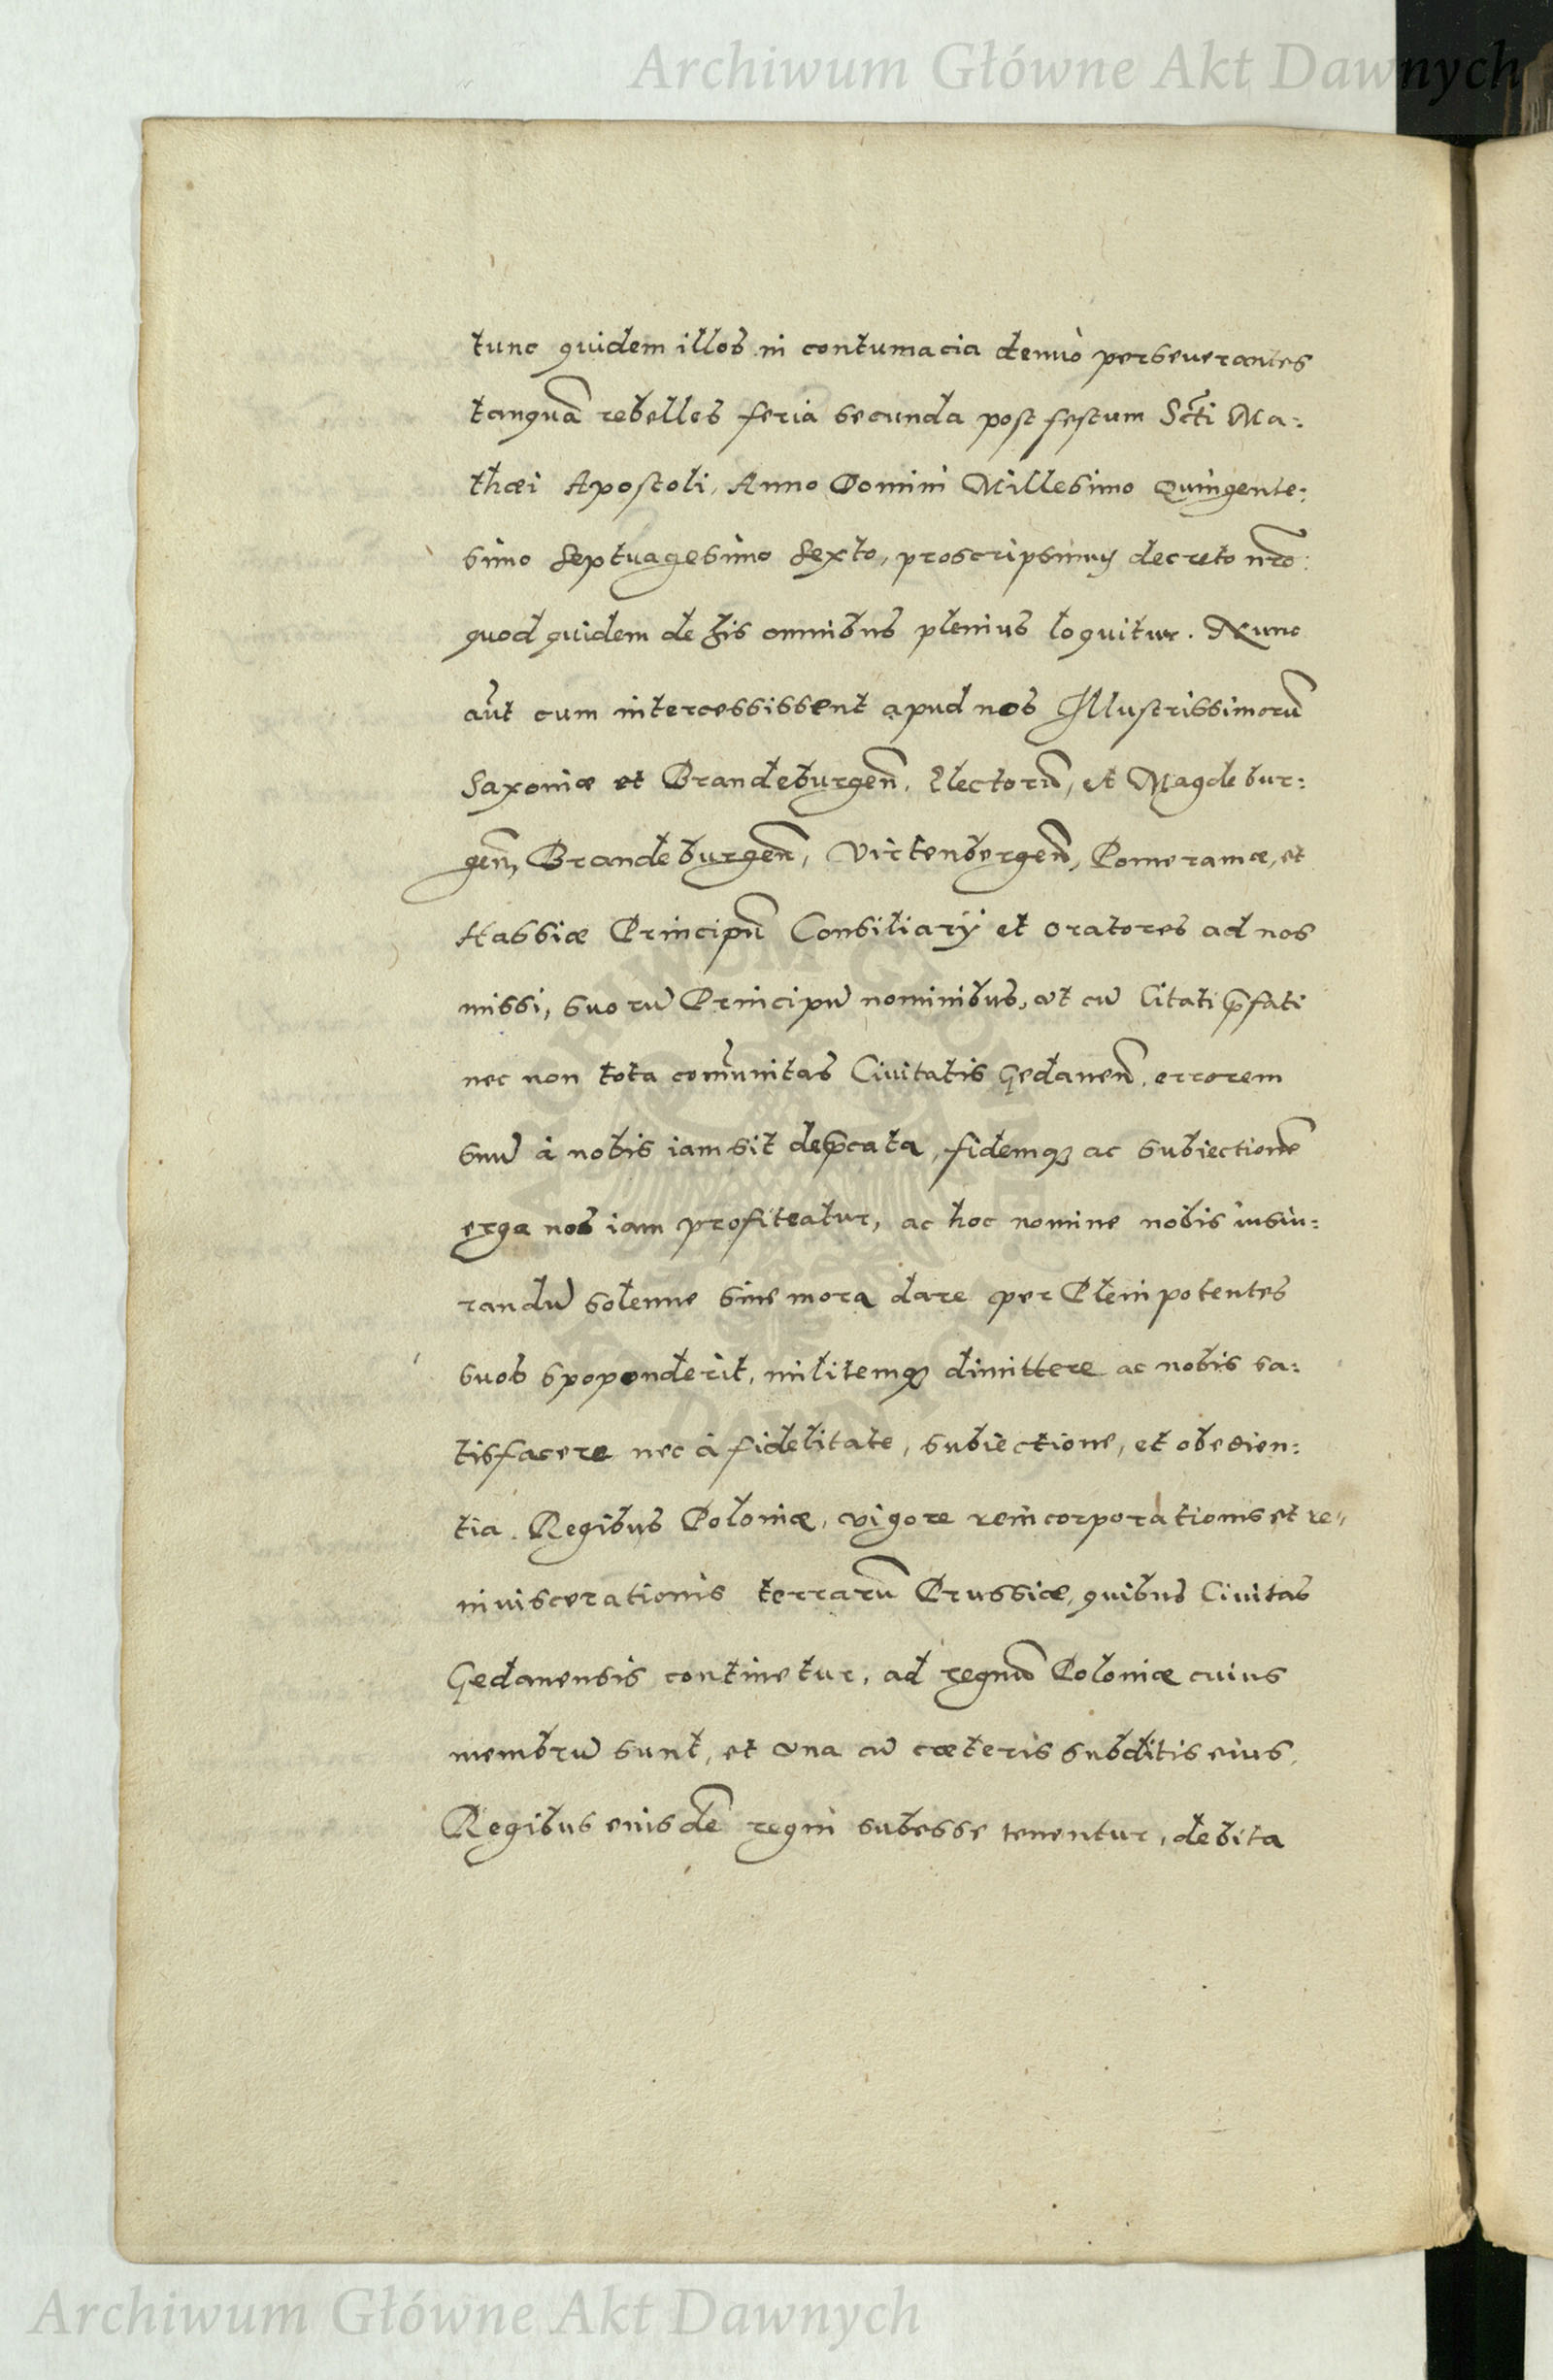 Archiwum Główne Akt Dawnych
tunc quidem illos in contumacia denuò perseuerantes
tanquã rebelles feria secunda post festum Scti Ma:
thæi Apostoli, Anno Domini Millesimo Quingente:
simo Septuagesimo Sexto, proscripsimus decreto nr̃o:
quod quidem de his omnibus plenius loquitur. Nunc
aũt cum intercessissent apud nos Illustrissimorũ
Saxoniæ et Brandeburgeñ. Electorũ, et Magdebur:
geñ, Brandeburgeñ, Virtenbergeñ, Pomeraniæ, et
Hassiæ Principũ Consiliarij et Oratores ad nos
missi, suorũ Principũ nominibus, et cũ Citati p̃fati
nec non tota com̃unitas Ciuitatis Gedaneñ. errorem
suũ à nobis iam sit dep̃cata, fidemq₃ ac subiectionẽ
erga nos iam profiteatur, ac hoc nomine nobis iusiu:
randũ solenne sine mora dare per Plenipotentes
suos spoponderit, militemq₃ dimittere ac nobis sa:
tisfacere nec à fidelitate, subiectione, et obedien:
tia. Regibus Poloniæ, vigore reincorporationis et re„
inuiscerationis terrarũ Prussiæ, quibus Ciuitas
Gedanensis continetur, ad regnũ Poloniæ cuius
membrũ sunt, et vna cũ cæteris subditis eius,
Regibus eiusdẽ regni subesse tenentur, debita
ARCHIWUM GŁÓWNE AKT DAWNYCH
Archiwum Główne Akt Dawnych